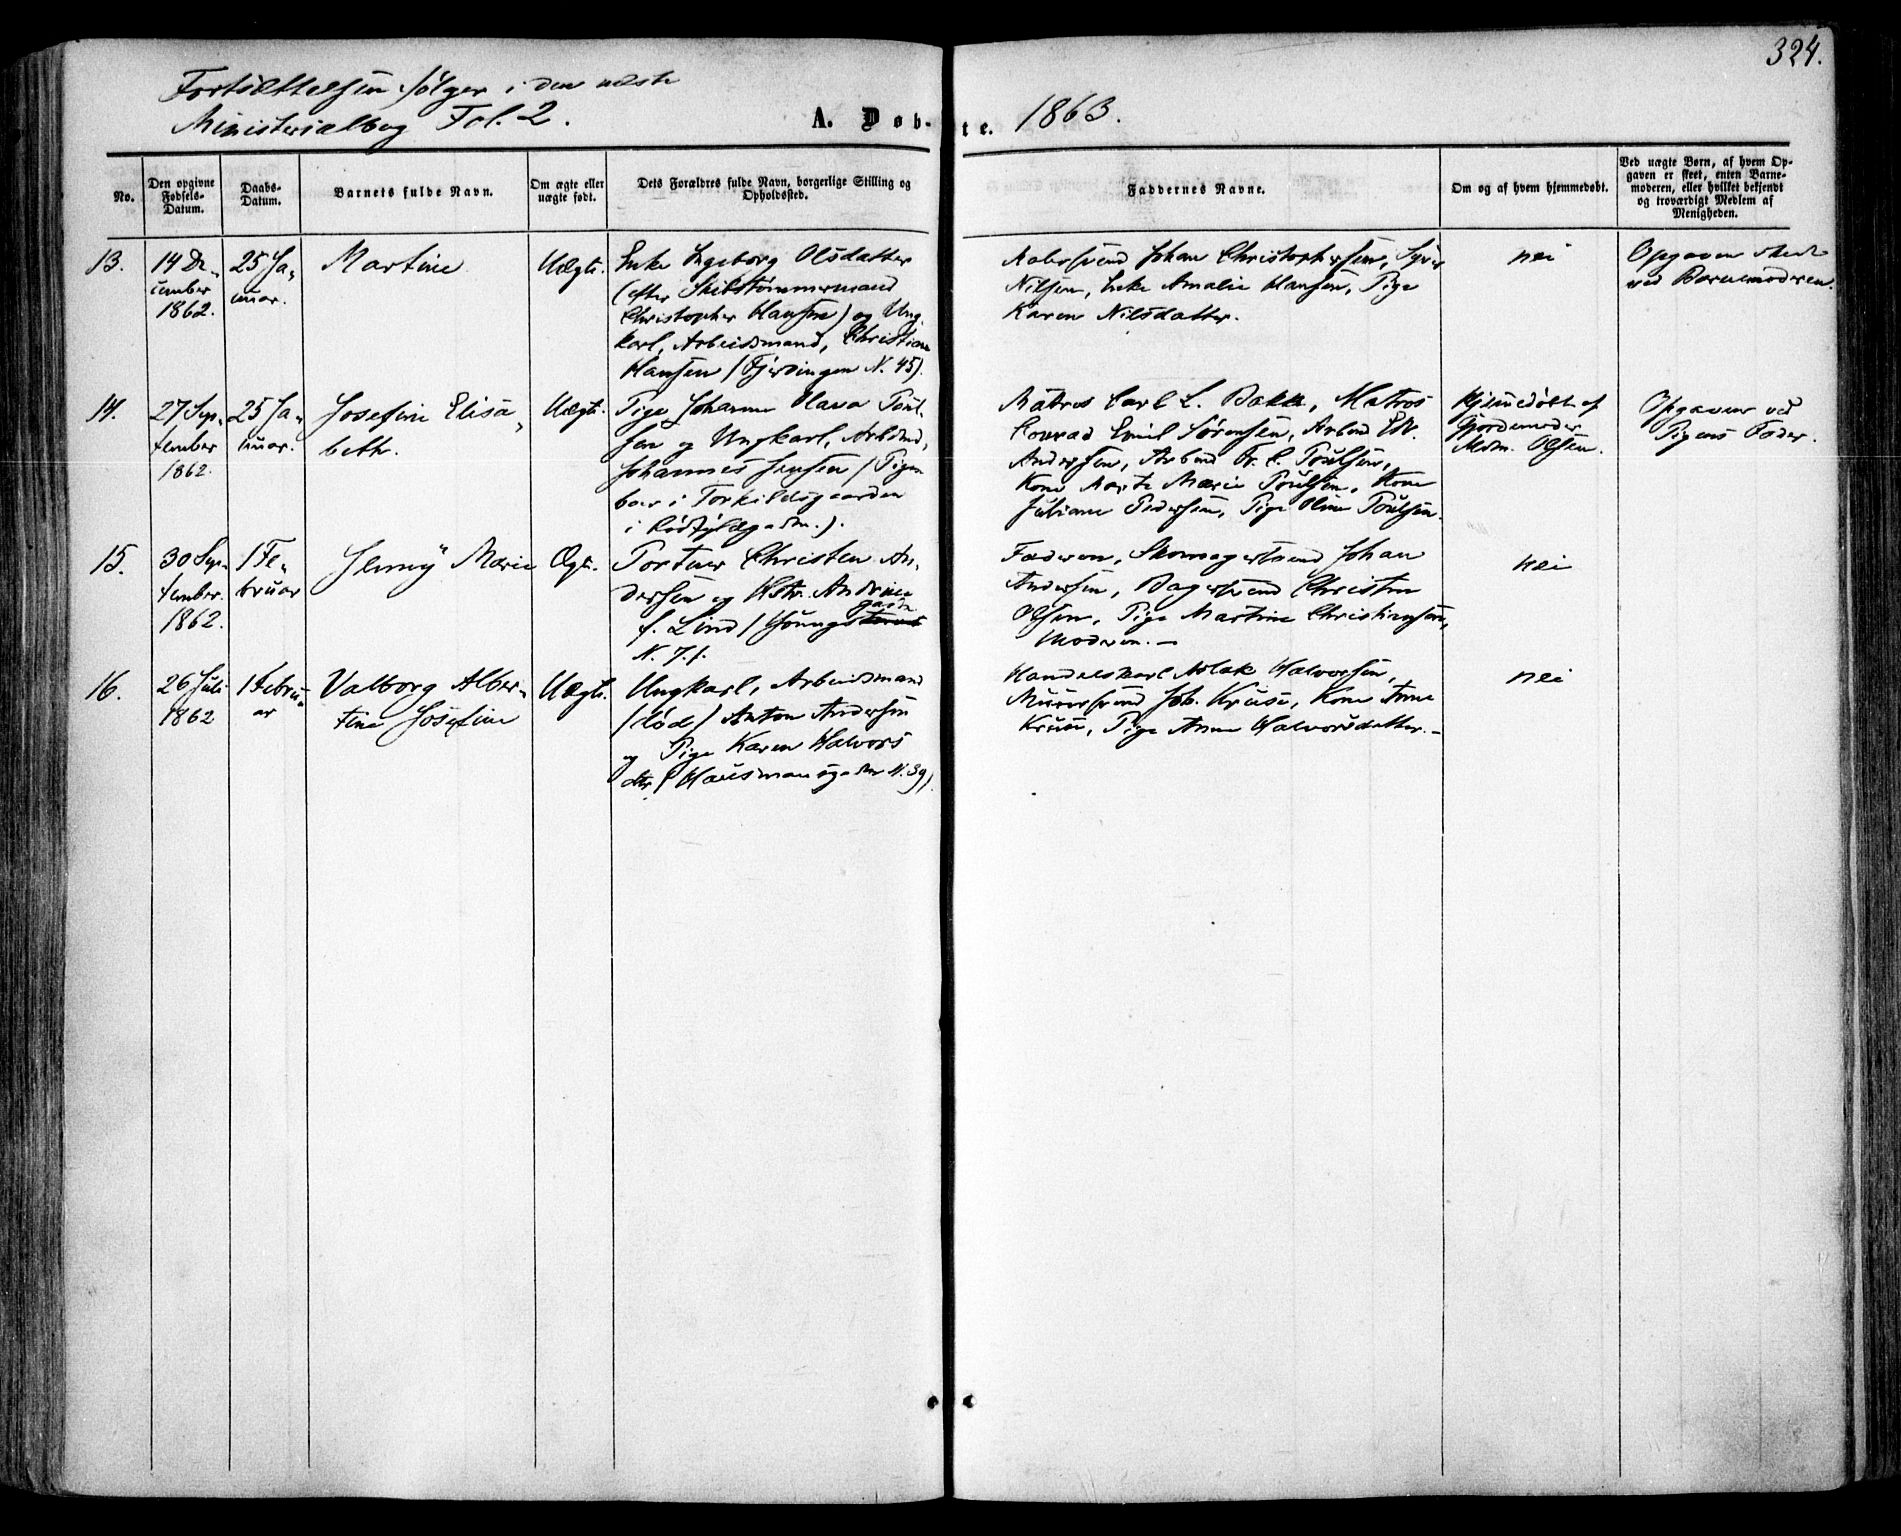 324.
Fortsættelsen følger i den næste
Ministerialbog Fol. 2.
A. Døb- te. 1863.
No.
Den opgivne
Fødsels-
Datum.
Daabs-
Datum.
Barnets fulde Navn.
Om ægte eller
uægte født.
Dets Forældres fulde Navn, borgerlige Stilling og
Opholdssted.
Faddernes Navne.
Om og af hvem hjemmedøbt.
Ved uægte Børn, af hvem Op-
gaven er skeet, enten Barne-
moderen, eller hvilket bekjendt
og troværdigt Medlem af
Menigheden.
13.
14 De-
cember
1862.
25 Ja-
nuar.
Martine
Uægte.
Enke Ingeborg Olsdatter
(efter Skibstømmermand
Christopher Hansen) og Ung-
karl, Arbeidsmand, Christian
Hansen (Fjerdingen N. 45).
Johan Christophersen,
Nilsen, Enke Amalie Hansen, Pige
Karen Nilsdatter.
nei
Opgaven skeet
ved Barnemoderen.
14.
27 Sep-
tember
1862.
25 Ja-
nuar.
Josefine Elisa-
beth.
Uægte.
Pige Johanne Olava Poul-
sen og Ungkarl, Arbmd,
Johannes Jensen (Pigen
boer i Torkildsgaarden
i Rødfyldgaden.).
Matros Carl L. Bakke, Matros
Conrad Emil Sørensen, Arbmd Edv.
Andersen, Arbmd Poulsen,
Kone Marte Marie Poulsen, Kone
Juliane Pedersen, Pige Oline Poulsen.
Hjemmedøbt af
Gjordemoder
Mdm. Olsen.
Opgaven ved
Pigens Fader.
15.
30 Sep-
tember
1862.
1 Fe-
bruar
Jenny Marie
Ægte.
Portner Christen An-
dersen og Hstr. Andrine
f. Lind (Youngs gaden
N. 7.).
Faderen, Skomagersvend Johan
Andersen, Bagersvend Christen
Olsen, Pige Martine Christiansen,
Moderen. —
nei
16.
26 Juli
1862
1 Febru-
ar
Valborg Alber-
tine Josefine
Uægte.
Ungkarl, Arbeidsmand
(død) Anton Andersen
og Pige Karen Halvors
dtr. (Hausmansgaden N. 39).
Handelskarl Aslak Halvorsen,
Murersvend Joh. Kruse, Kone Anne
Kruse, Pige Anne Halvorsdatter. —
nei